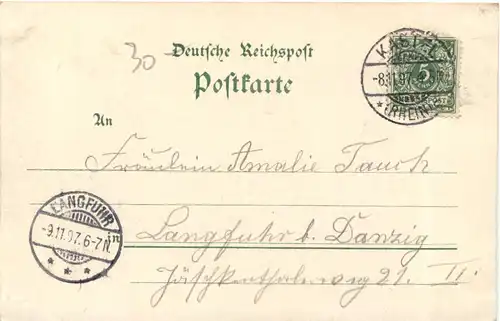 30
Deutsche Reichspost
Postkarte
KASTEL
-8.11.97.
* (RHEIN)
5
An
Fräulein Amalie Tauch
LANGFUHR
-9.11.97. 6-7N.
* * *
in
Langfuhr b. Danzig
Jäschkenthalerweg 21. II.